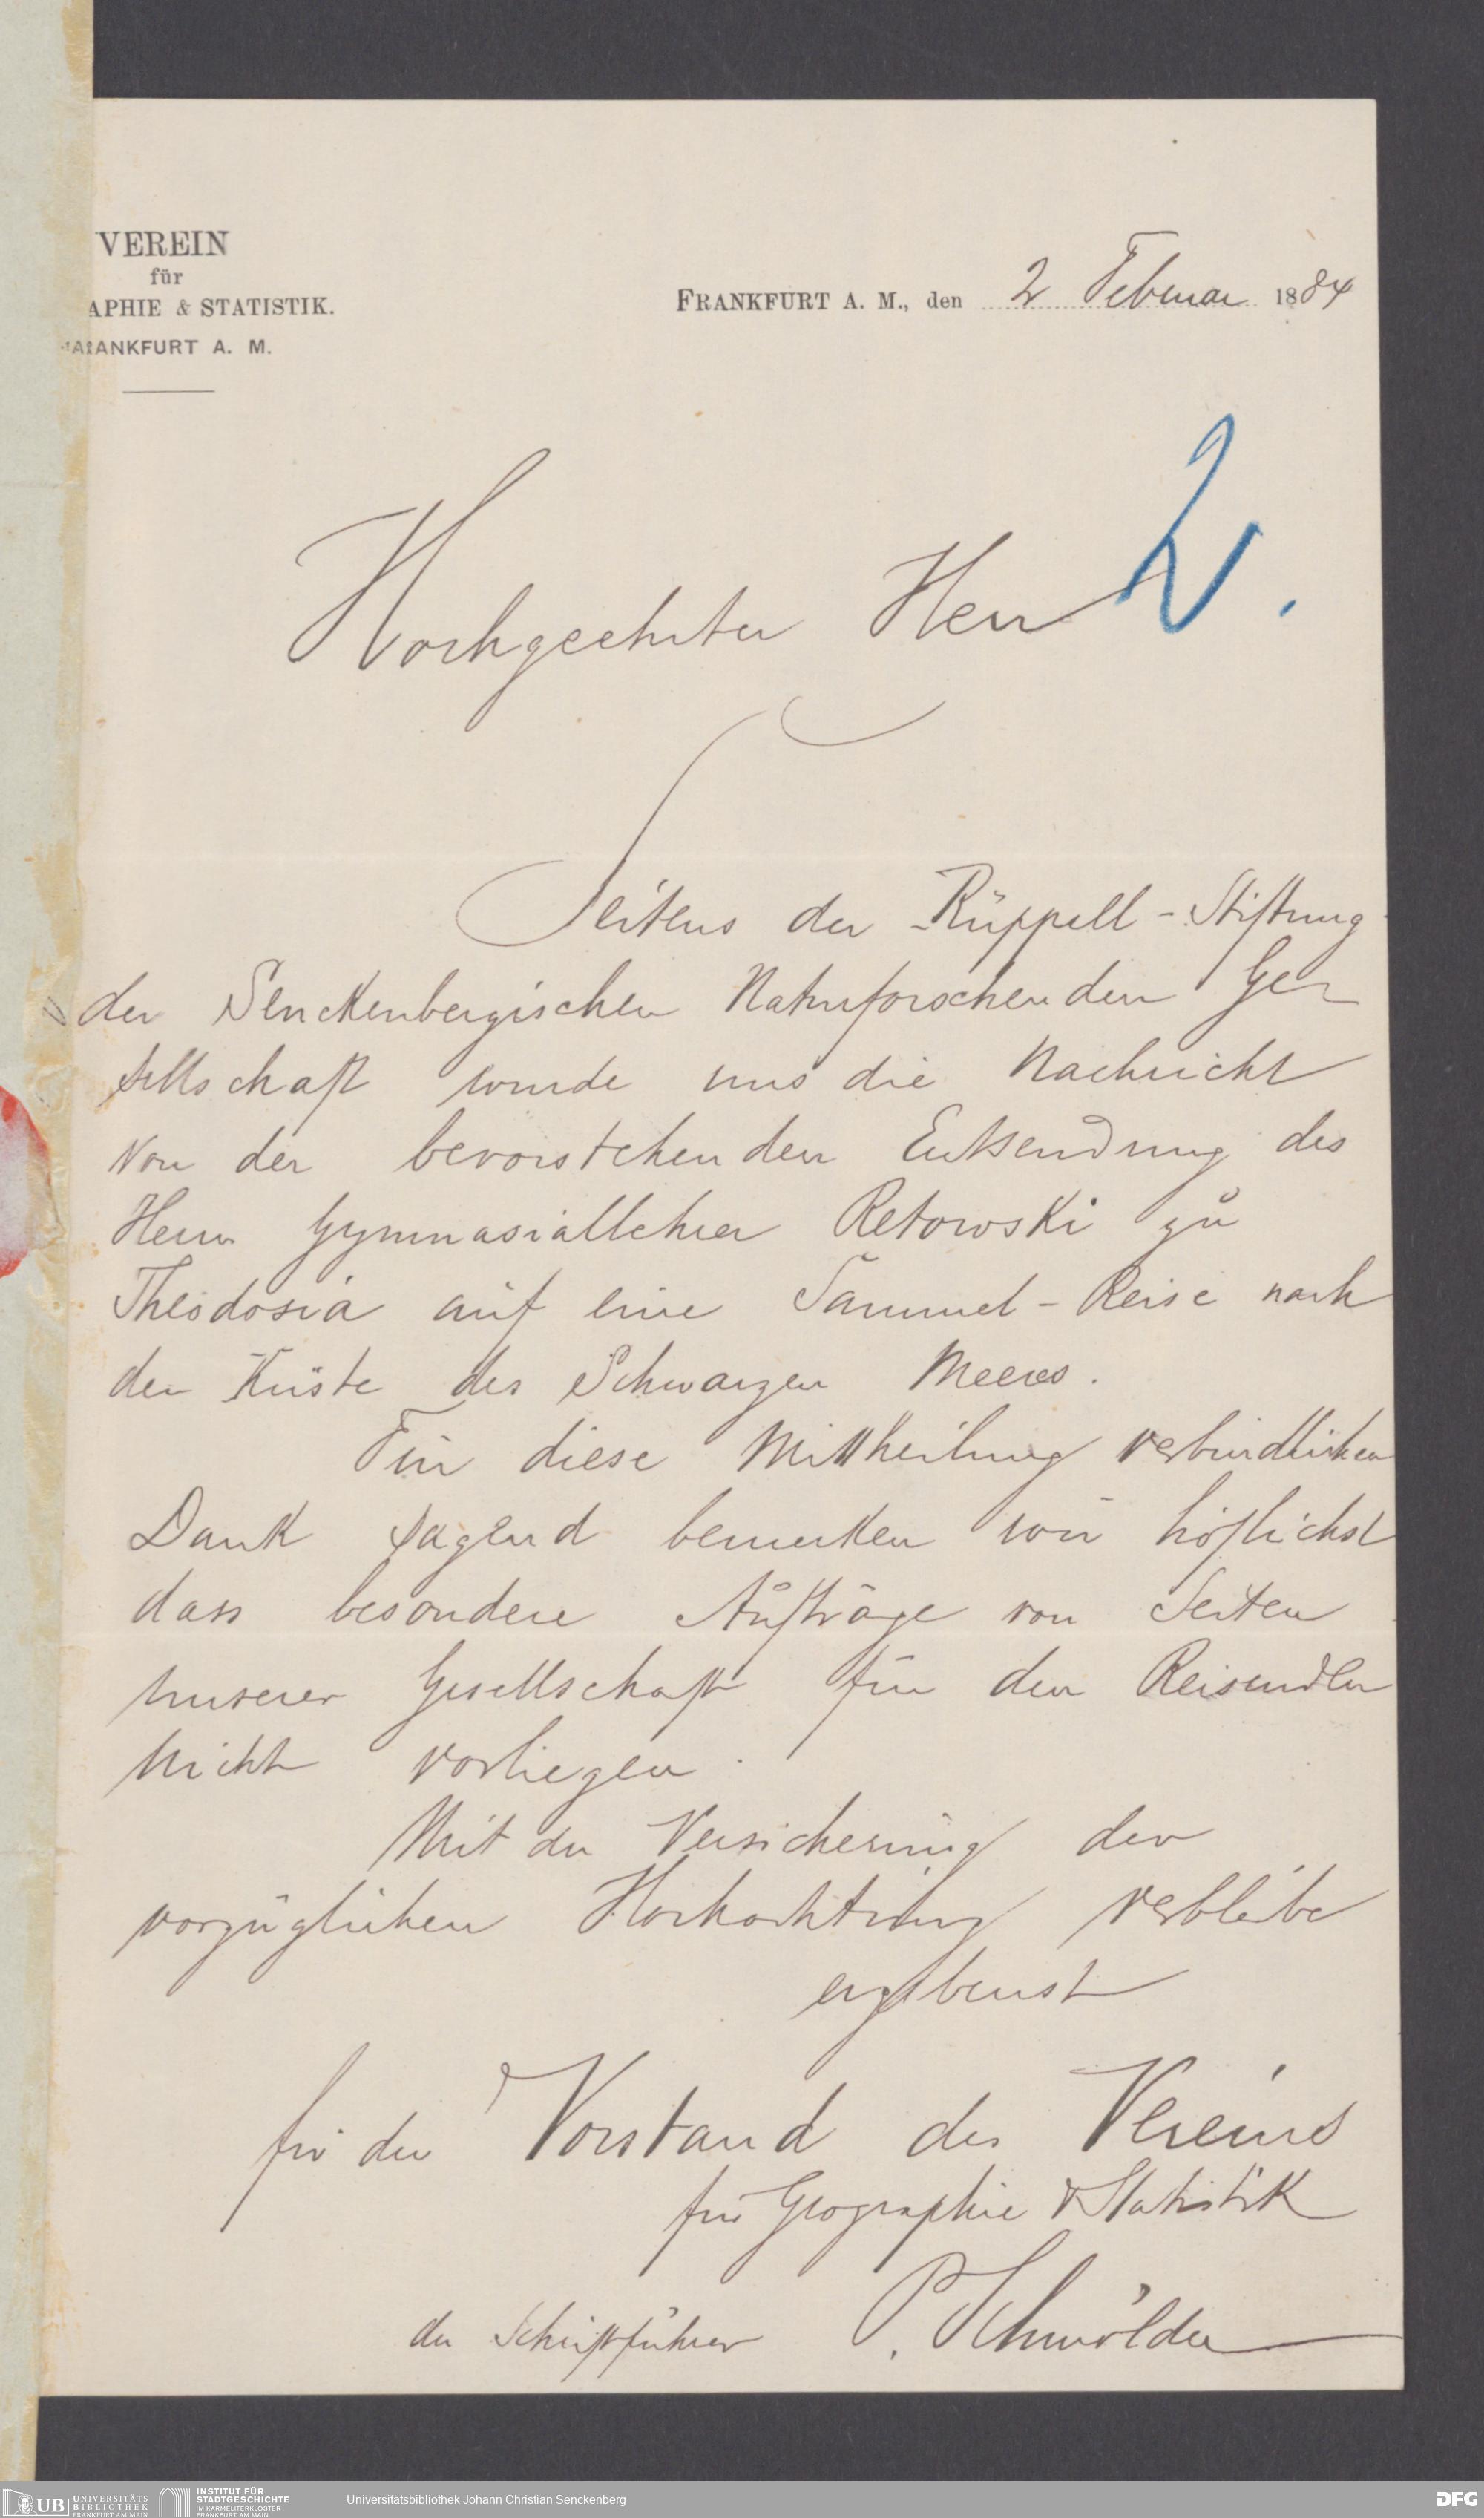 VEREIN
für
APHIE & STATISTIK.
ANKFURT A. M.
FRANKFURT A. M., den 2 Februar 1884
2.
Hochgeehrter Herr
Seitens der Rüppell-Stiftung
der Senckenbergischen Naturforschenden Ge-
sellschaft wurde uns die Nachricht
von der bevorstehenden Entsendung des
Herrn Gymnasiallehrer Retowski zu
Theodosia auf eine Sammel-Reise nach
der Küste des Schwarzen Meeres.
Für diese Mittheilung verbindlichen
Dank sagend bemerken wir höflichst
dass besondere Aufträge von Seiten
unserer Gesellschaft für den Reisenden
nicht vorliegen.
Mit der Versicherung der
vorzüglichen Hochachtung verbleibe
ergebenst
für den Vorstand des Vereins
für Geographie & Statistik
der Schriftführer P.
UB UNIVERSITÄTS
BIBLIOTHEK
FRANKFURT AM MAIN
INSTITUT FÜR
STADTGESCHICHTE
IM KARMELITERKLOSTER
FRANKFURT AM MAIN
Universitätsbibliothek Johann Christian Senckenberg
DFG